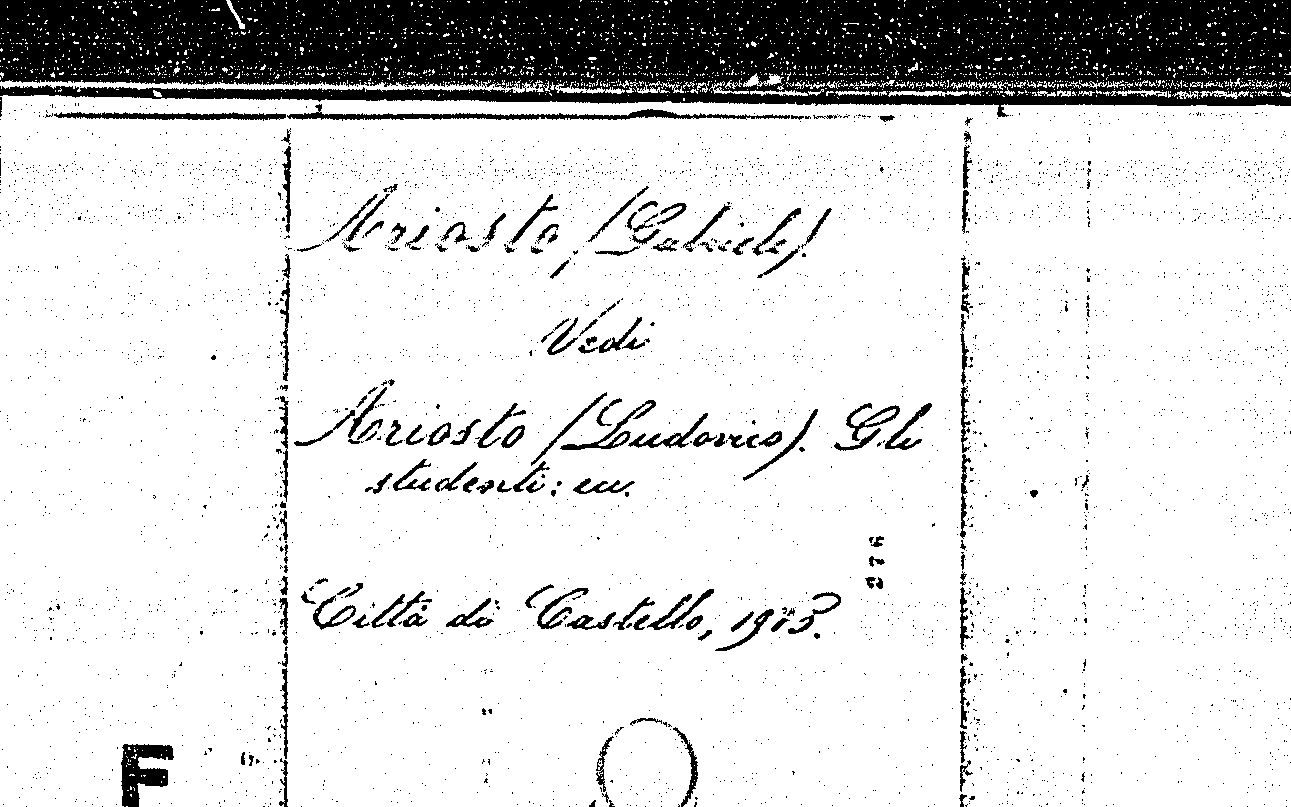 Ariosto (Gabriele).
Vedi
Ariosto (Ludovico). Gli
studenti: ecc.
276
Città di Castello, 1913.
F